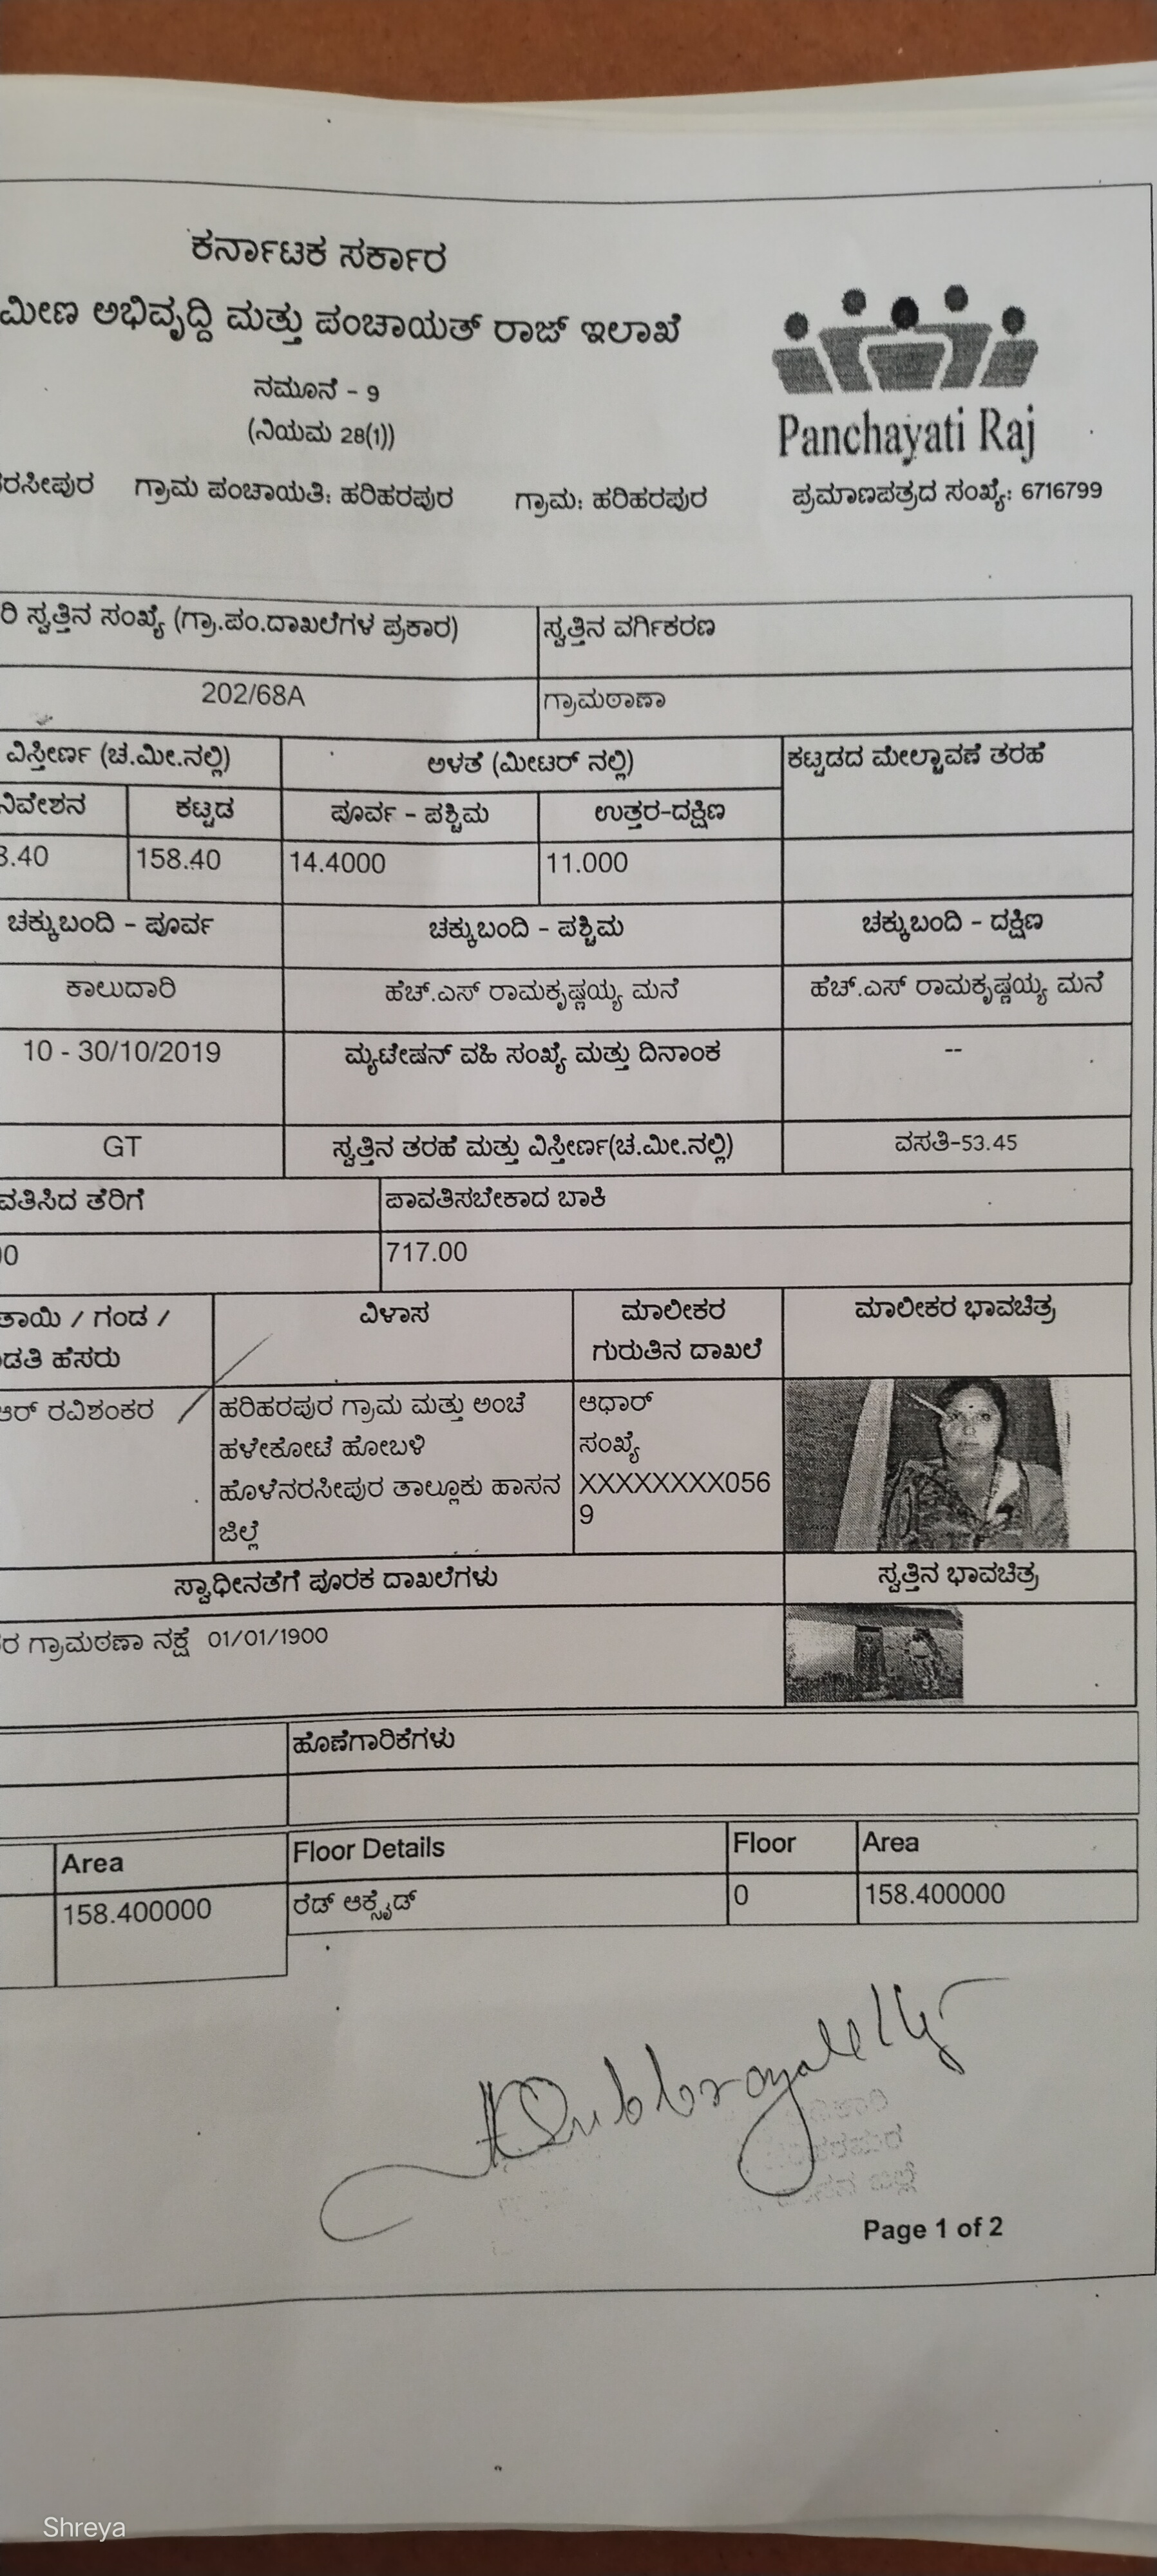 ಕರ್ನಾಟಕ ಸರ್ಕಾರ
ಮೀಣ ಅಭಿವೃದ್ದಿ ಮತ್ತು ಪಂಚಾಯತ್ ರಾಜ್ ಇಲಾಖೆ
ನಮೂನೆ - 9
(ನಿಯಮ 28(1))
Panchayati Raj
ರಸೀಪುರ ಗ್ರಾಮ ಪಂಚಾಯತಿ: ಹರಿಹರಪುರ ಗ್ರಾಮ: ಹರಿಹರಪುರ ಪ್ರಮಾಣಪತ್ರದ ಸಂಖ್ಯೆ: 6716799
ರಿ ಸ್ವತ್ತಿನ ಸಂಖ್ಯೆ (ಗ್ರಾ.ಪಂ.ದಾಖಲೆಗಳ ಪ್ರಕಾರ) ಸ್ವತ್ತಿನ ವರ್ಗಿಕರಣ
202/68A ಗ್ರಾಮಠಾಣಾ
ವಿಸ್ತೀರ್ಣ (ಚ.ಮೀ.ನಲ್ಲಿ) ಅಳತೆ (ಮೀಟರ್ ನಲ್ಲಿ) ಕಟ್ಟಡದ ಮೇಲ್ಚಾವಣೆ ತರಹೆ
ನಿವೇಶನ ಕಟ್ಟಡ ಪೂರ್ವ - ಪಶ್ಚಿಮ ಉತ್ತರ-ದಕ್ಷಿಣ
8.40 158.40 14.4000 11.000
ಚಕ್ಕುಬಂದಿ - ಪೂರ್ವ ಚಕ್ಕುಬಂದಿ - ಪಶ್ಚಿಮ ಚಕ್ಕುಬಂದಿ - ದಕ್ಷಿಣ
ಕಾಲುದಾರಿ ಹೆಚ್.ಎಸ್ ರಾಮಕೃಷ್ಣಯ್ಯ ಮನೆ ಹೆಚ್.ಎಸ್ ರಾಮಕೃಷ್ಣಯ್ಯ ಮನೆ
10 - 30/10/2019 ಮ್ಯಟೇಷನ್ ವಹಿ ಸಂಖ್ಯೆ ಮತ್ತು ದಿನಾಂಕ --
GT ಸ್ವತ್ತಿನ ತರಹೆ ಮತ್ತು ವಿಸ್ತೀರ್ಣ(ಚ.ಮೀ.ನಲ್ಲಿ) ವಸತಿ-53.45
ವತಿಸಿದ ತೆರಿಗೆ ಪಾವತಿಸಬೇಕಾದ ಬಾಕಿ
0 717.00
ತಾಯಿ / ಗಂಡ / ವಿಳಾಸ ಮಾಲೀಕರ ಮಾಲೀಕರ ಭಾವಚಿತ್ರ
ಡತಿ ಹೆಸರು ಗುರುತಿನ ದಾಖಲೆ
ಆರ್ ರವಿಶಂಕರ ಹರಿಹರಪುರ ಗ್ರಾಮ ಮತ್ತು ಅಂಚೆ ಆಧಾರ್
ಹಳೇಕೋಟೆ ಹೋಬಳಿ ಸಂಖ್ಯೆ
ಹೊಳೆನರಸೀಪುರ ತಾಲ್ಲೂಕು ಹಾಸನ XXXXXXXX056
ಜಿಲ್ಲೆ 9
ಸ್ವಾಧೀನತೆಗೆ ಪೂರಕ ದಾಖಲೆಗಳು ಸ್ವತ್ತಿನ ಭಾವಚಿತ್ರ
ರ ಗ್ರಾಮಠಣಾ ನಕ್ಷೆ 01/01/1900
ಹೊಣೆಗಾರಿಕೆಗಳು
Area Floor Details Floor Area
158.400000 ರೆಡ್ ಆಕ್ಸೈಡ್ 0 158.400000
Page 1 of 2
Shreya